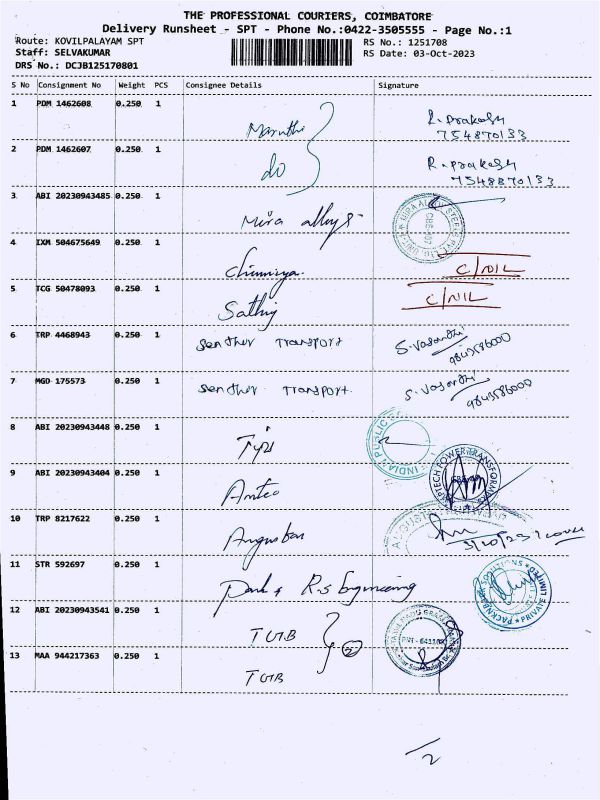 THE PROFESSIONAL COURIERS, COIMBATORE
Delivery Runsheet - SPT - Phone No.:0422-3505555 - Page No.:1
Route: KOVILPALAYAM SPT RS No.: 1251708
Staff: SELVAKUMAR RS Date: 03-Oct-2023
DRS No.: DCJB125170801
S No Consignment No Weight PCS Consignee Details Signature
1 PDM 1462608 0.250 1 Maruthi R. Prakash
754870133
2 PDM 1462607 0.250 1 do R. Prakash
7548870133
3 ABI 20230943485 0.250 1 Mira alloys
4 IXM 504675649 0.250 1 Chinmiya. C/NIL
5 TCG 50478093 0.250 1 Sathy C/NIL
6 TRP 4468943 0.250 1 Senthur Transport S. Vasanthi
9843586000
7 MGD 175573 0.250 1 Senthur Transport. S. Vasanthi
9843586000
8 ABI 20230943448 0.250 1 INDIAN PUBLIC
9 ABI 20230943404 0.250 1 Amtec POWER TRANSFORM
10 TRP 8217622 0.250 1 Angustan 3/10/23
11 STR 592697 0.250 1 R.S Engineering PACKNBAR SOLUTIONS PRIVATE LIMITED
12 ABI 20230943541 0.250 1 TGB
2
13 MAA 944217363 0.250 1 TGB
/2